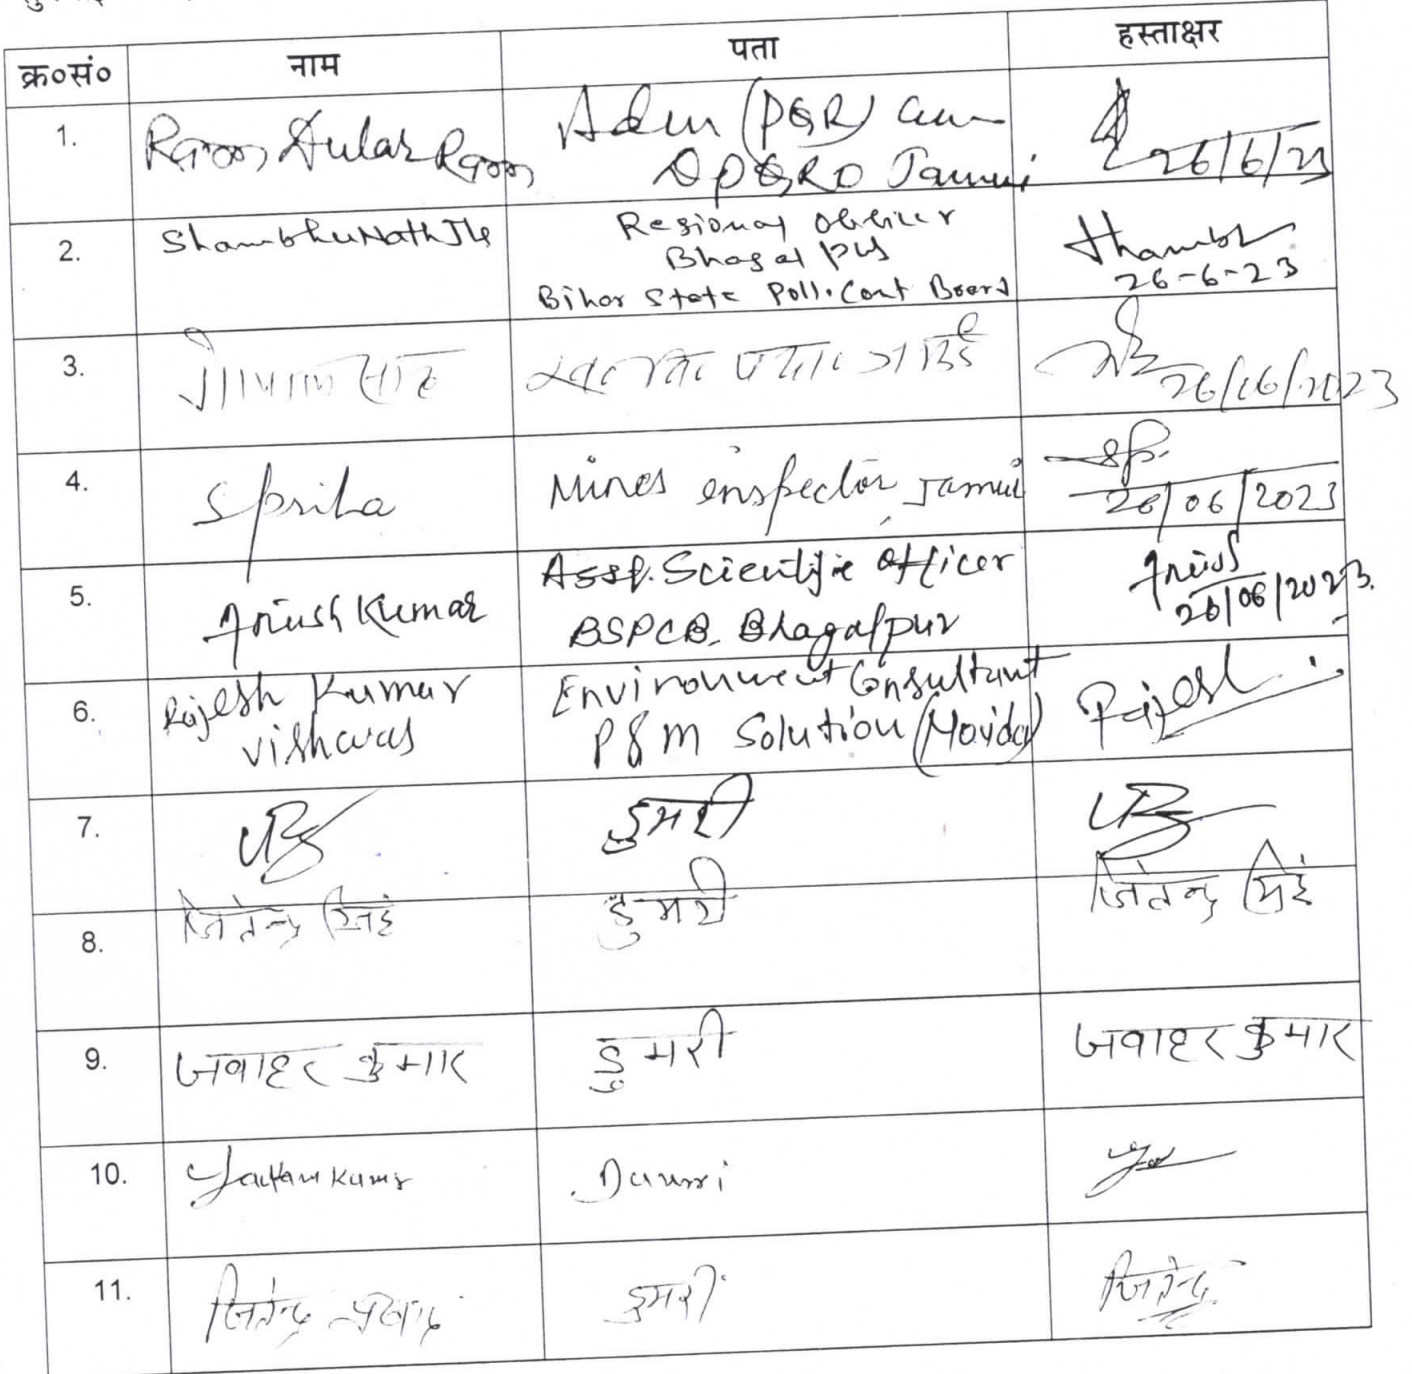 क्र०सं० नाम पता हस्ताक्षर
1. Ram Dular Ram Adm (PGR) cum
DPGRO Jamui 26/6/23
2. Shambhu Nath Jha Regional Officer
Bhagalpur
Bihar State Poll. Cont Board
26-6-23
3. गोपाल साह 26/06/2023
4. Spriha Mines inspector, Jamui
26/06/2023
5. Anush Kumar Asst. Scientific Officer
BSPCB, Bhagalpur 26/06/2023.
6. Rajesh Kumar Environment Consultant Rajesh
Vishwas P & M Solution (Noida)
7. डुमरी
8. जितेन्द्र सिंह डुमरी जितेन्द्र सिंह
9. जवाहर कुमार डुमरी जवाहर कुमार
10. Kumar Dumri
11. जितेन्द्र प्रसाद डुमरी जितेन्द्र